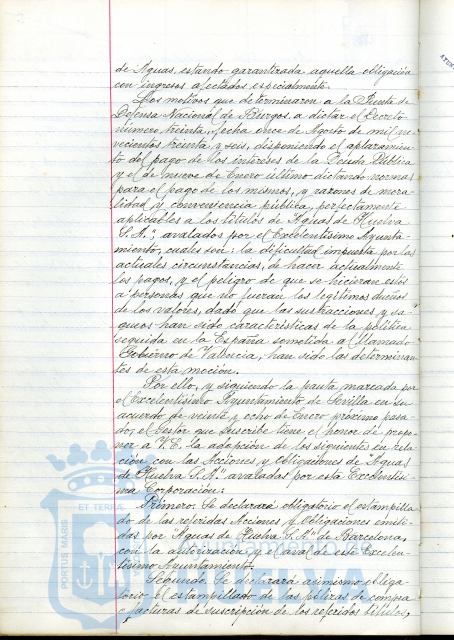 de Aguas, estando garantizada aquella obligación
con ingresos afectados especialmente.
Los motivos que determinaron a la Junta de
Defensa Nacional de Burgos, a dictar el Decreto
número treinta, fecha once de Agosto de mil no-
vecientos treinta y seis, disponiendo el aplazamien-
to del pago de los intereses de la Deuda Pública
y el de nueve de Enero último dictando normas
para el pago de los mismos, y razones de mora-
lidad y conveniencia pública, perfectamente
aplicables a los títulos de "Aguas de Huelva
S.A.", avalados por el Excelentísimo Ayunta-
miento, cuales son: la dificultad impuesta por las
actuales circunstancias, de hacer actualmente
los pagos, y el peligro de que se hicieran estos
a personas que no fueran los legítimos dueños
de los valores, dado que las sustracciones y sa-
queos han sido características de la política
seguida en la España sometida al llamado
Gobierno de Valencia, han sido las determinan-
tes de esta moción.
Por ello, y siguiendo la pauta marcada por
el Excelentísimo Ayuntamiento de Sevilla en su
acuerdo de veinte y ocho de Enero próximo pasa-
do, el Gestor que suscribe tiene el honor de propo-
ner a V.E. la adopción de los siguientes en rela-
ción con las Acciones y Obligaciones de "Aguas
de Huelva S.A." avaladas por esta Excelentísi-
ma Corporación:
Primero. Se declarará obligatorio el estampilla-
do de las referidas Acciones y Obligaciones emiti-
das por "Aguas de Huelva S.A." de Barcelona,
con la autorización y el aval de este Excelen-
tísimo Ayuntamiento.
Segundo. Se declarará asimismo obliga-
torio el estampillado de las pólizas de compra
o facturas de suscripción de los referidos títulos,
PORTUS MARIS
ET TERRAE
HUELVA